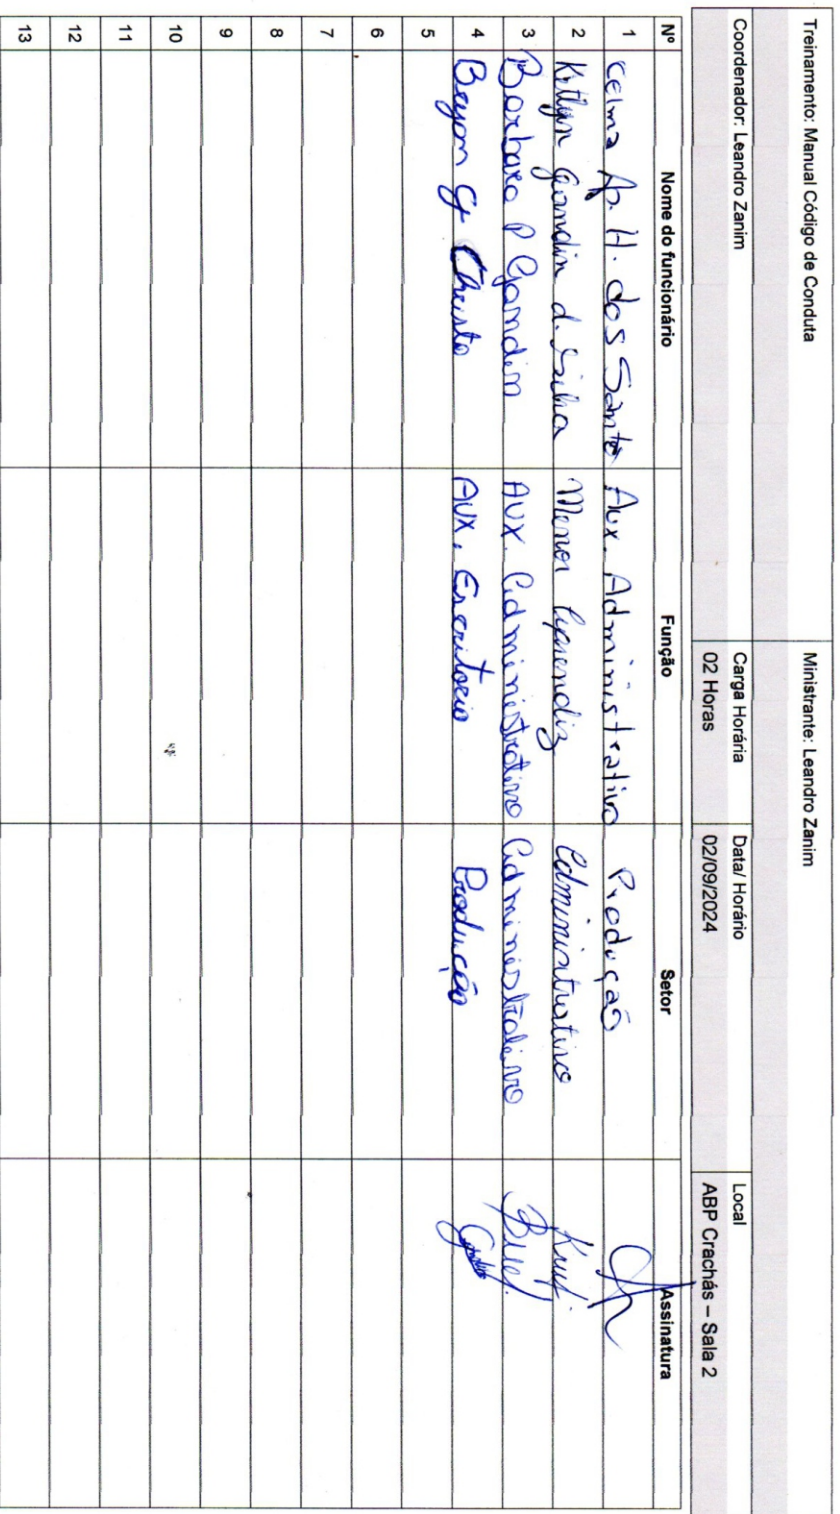 Treinamento: Manual Código de Conduta Ministrante: Leandro Zanim
Coordenador: Leandro Zanim Carga Horária Data/ Horário Local
02 Horas 02/09/2024 ABP Crachás – Sala 2
Nº Nome do funcionário Função Setor Assinatura
1 Celma Ap. H. dos Santo Aux. Administrativo Produção
2 Kitllyn Gandin d. Silva Menor Aprendiz Administrativo
3 Barbara P Gandin Aux. Administrativo Administrativo
4 Aux. Escritorio Produção
5
6
7
8
9
10
11
12
13